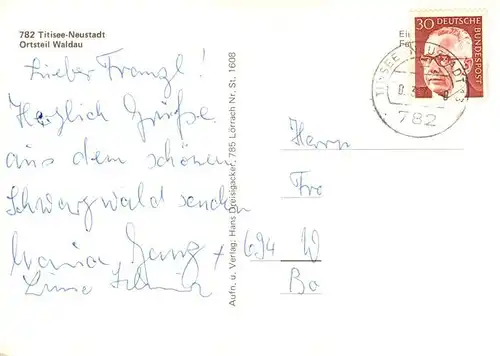 782 Titisee-Neustadt
Ortsteil Waldau
Lieber Franzl!
Herzlich Grüße
aus dem schönen
Schwarzwald senden
Maria,
Aufn. u. Verlag: Hans Dreisigacker, 785 Lörrach Nr. St. 1608
30 DEUTSCHE BUNDESPOST
TITISEE-NEUSTADT
782
Herrn
Fra
694 W